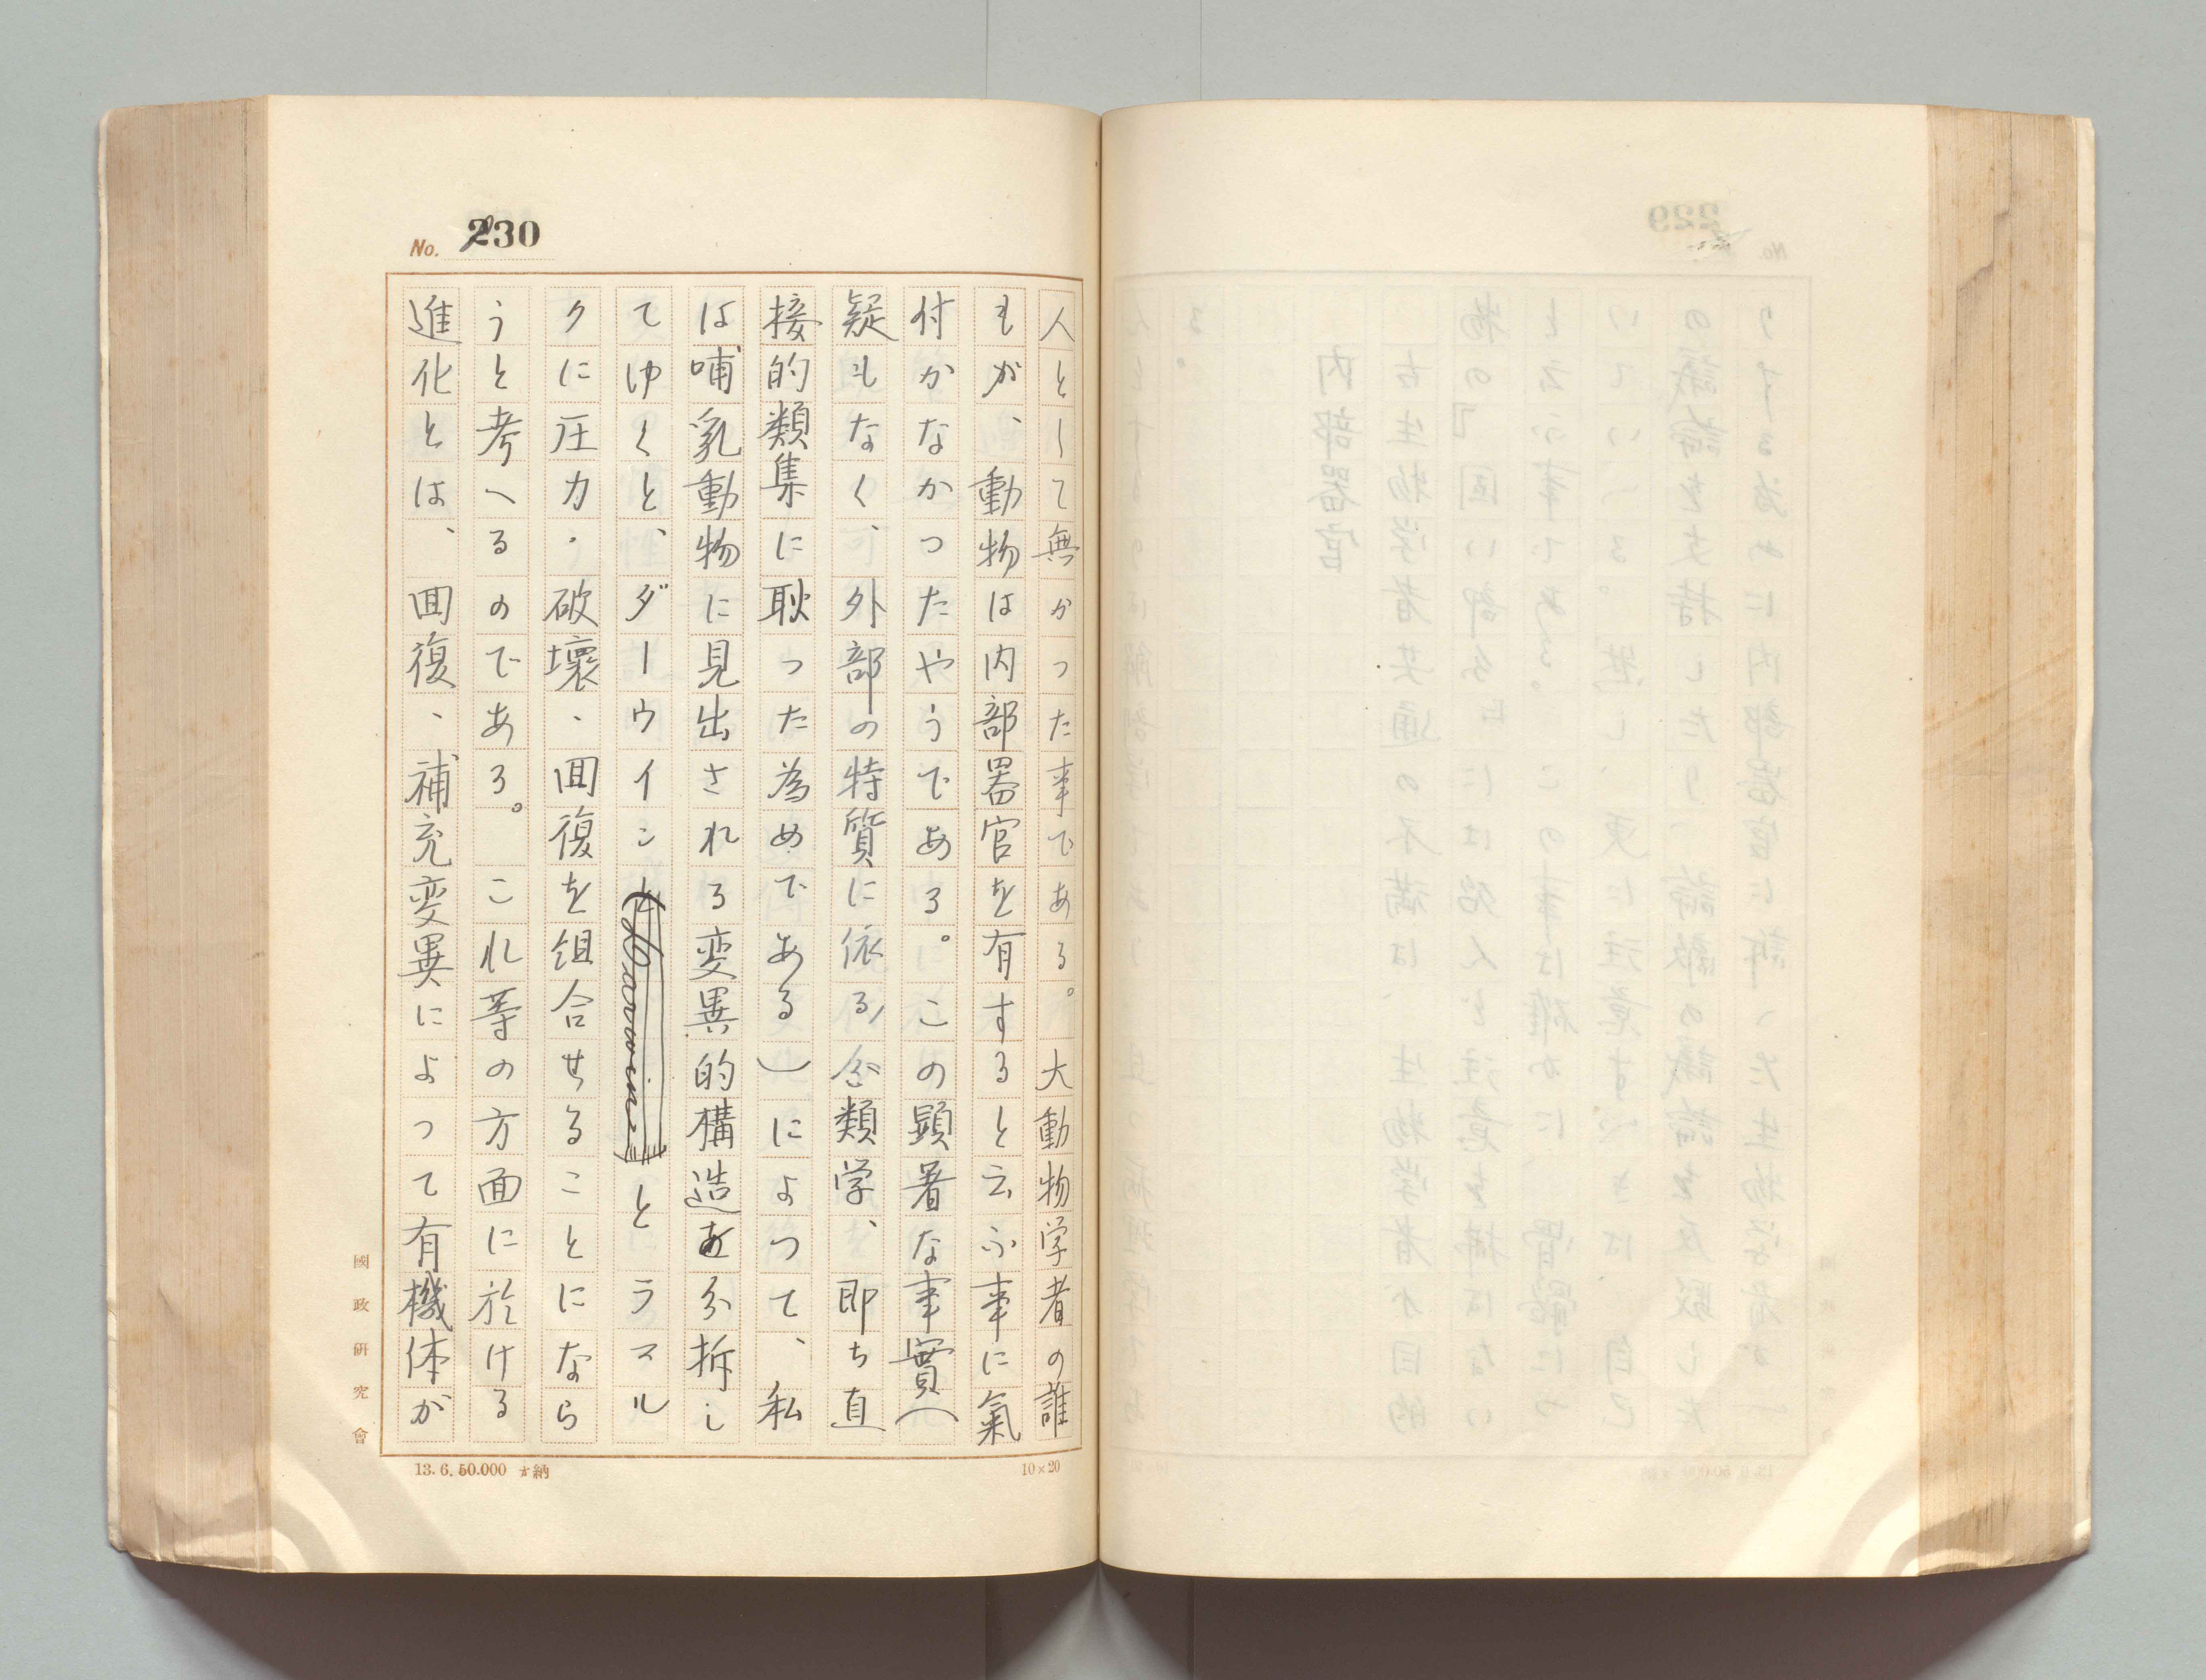 No. 230
人として無かつた事である。大動物学者の誰
もが、動物は内部器官を有すると云ふ事に氣
付かなかつたやうである。この顕著な事實（
疑もなく、外部の特質に依る分類学、即ち直
接的類集に耿つた為めである）によつて、私
は哺乳動物に見出される変異的構造を分拆し
てゆくと、ダーウインとラマル
クに圧力・破壊、囬復を組合せることになら
うと考へるのである。これ等の方面に於ける
進化とは、囬復、補充変異によつて有機体が
國政研究會
13.6.50.000 納
10×20